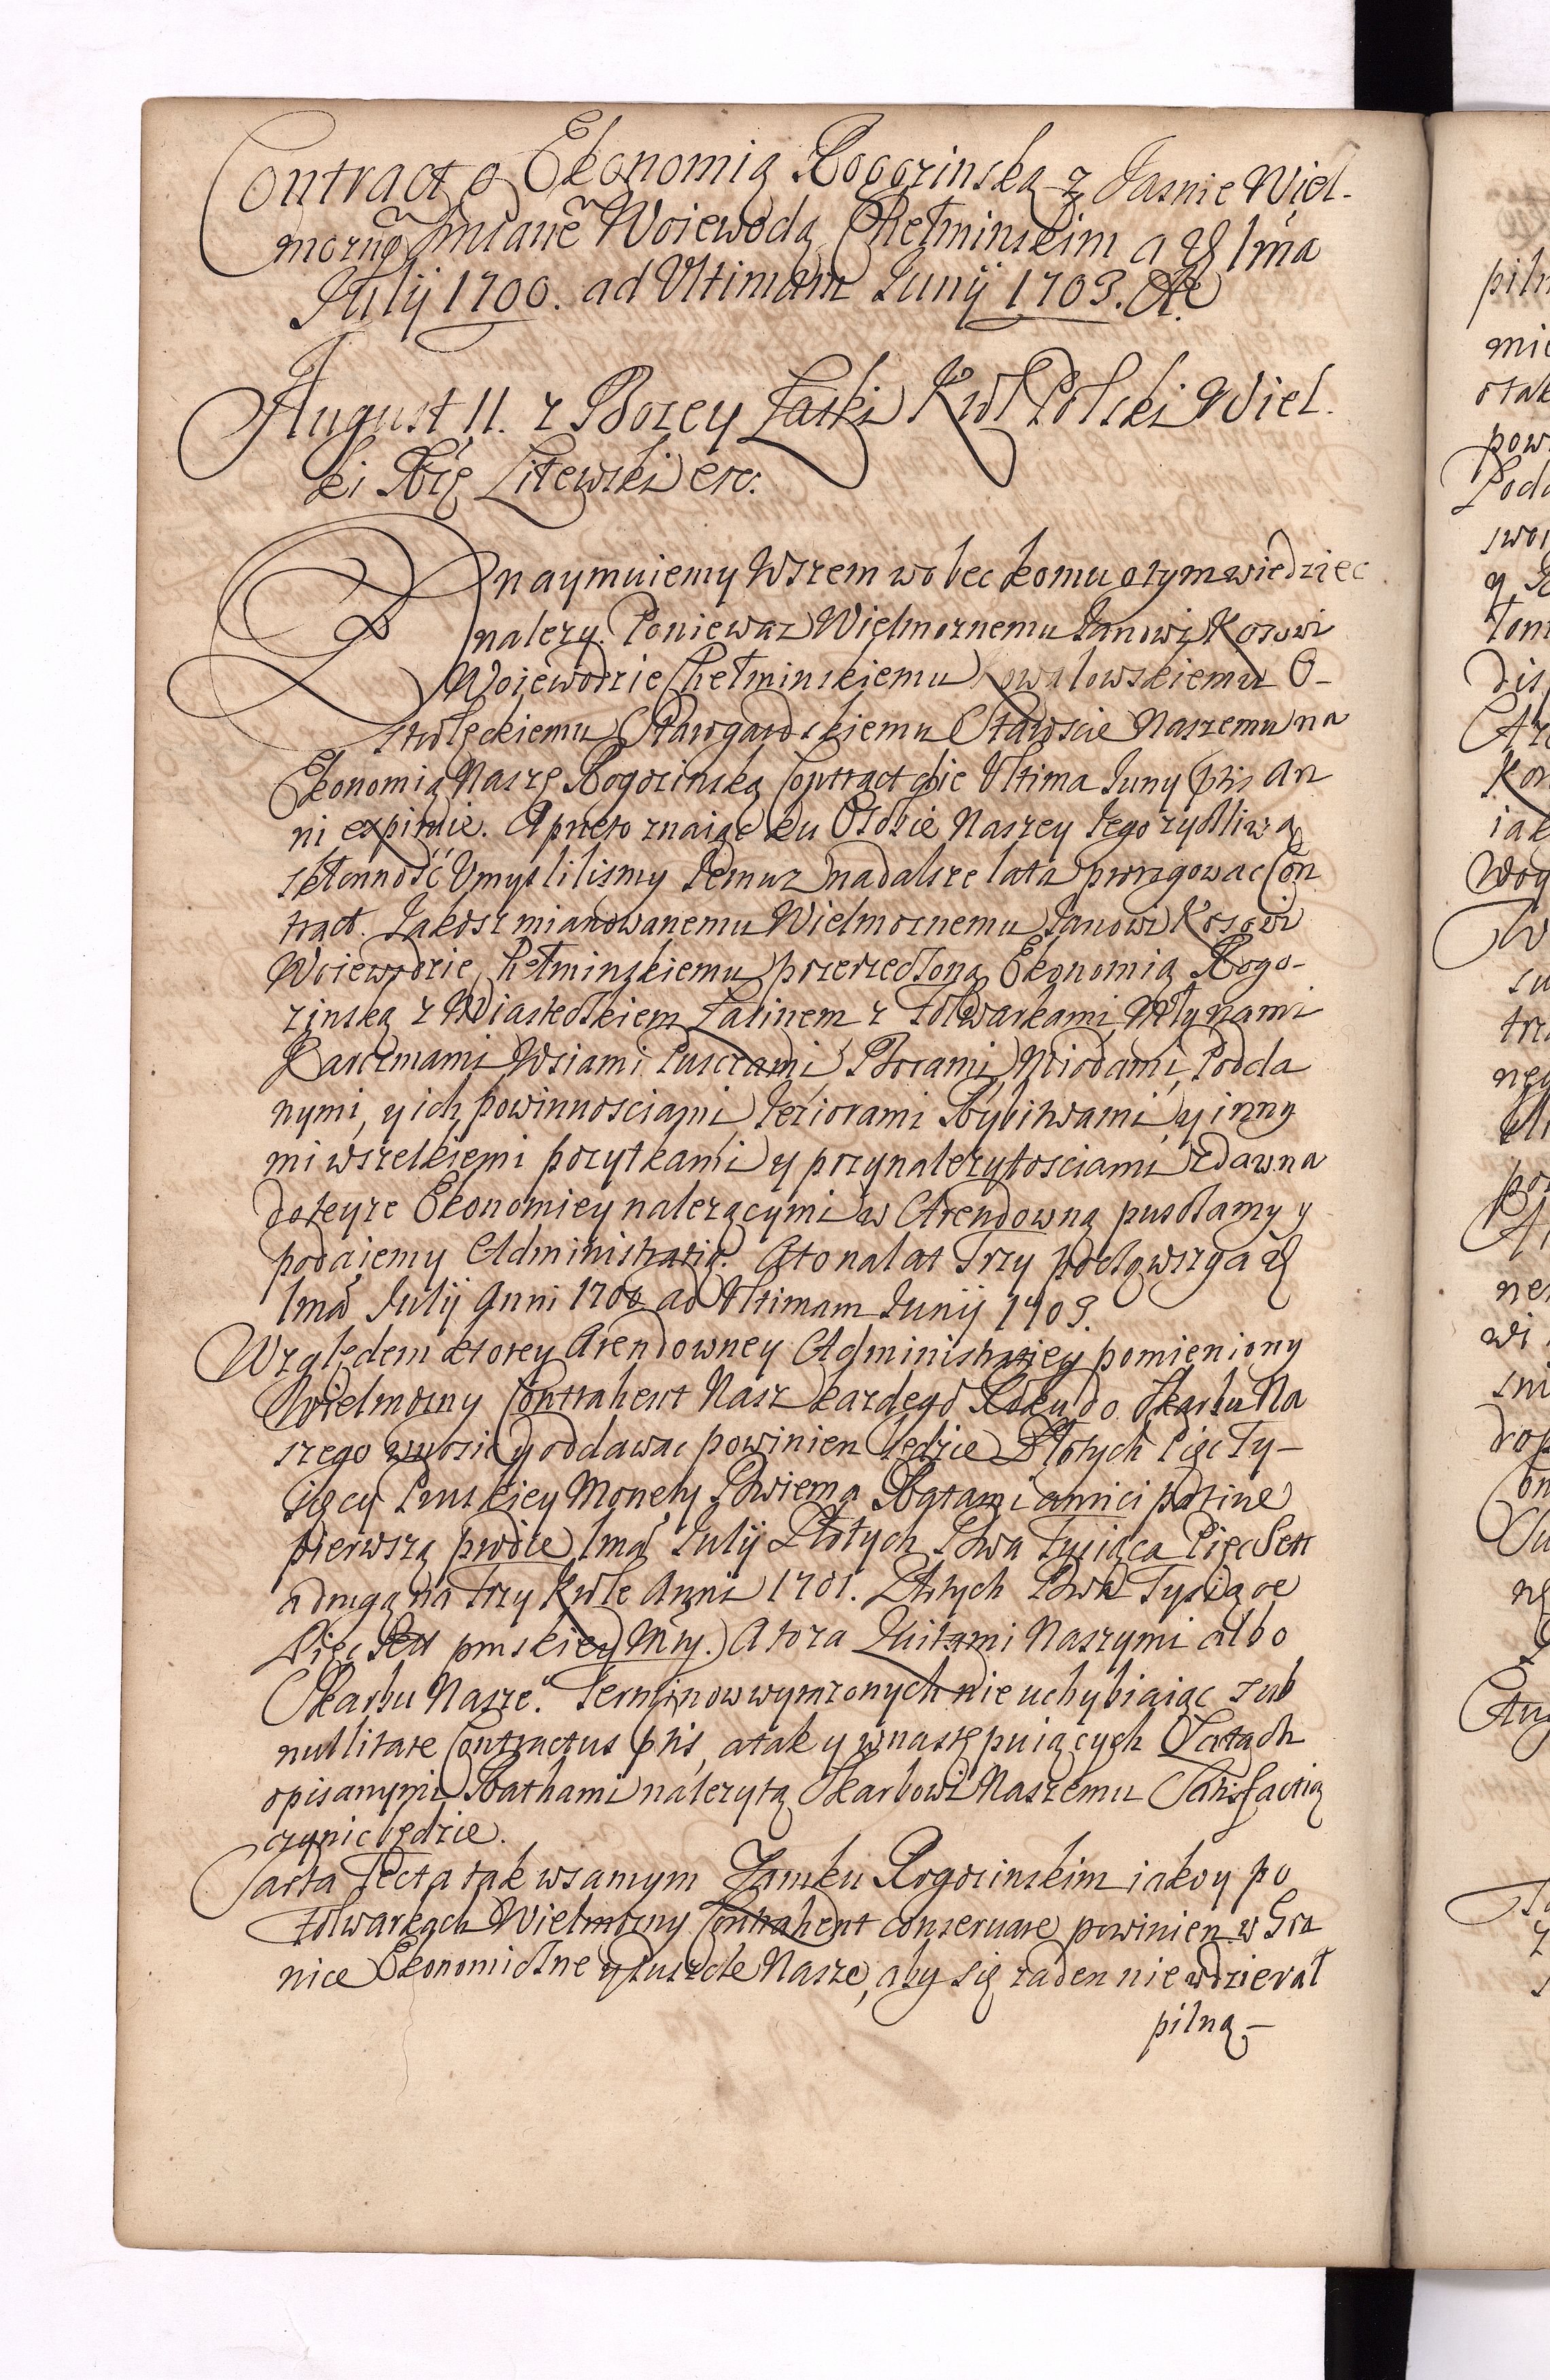 Contract o Ekonomią Rogozinską z Jasnie Wiel-
możnỹ Imcianẽ Woiewodą Chełminskim a 1ma
Julij 1700. ad Ultimam Junij 1703. A.
August II. z Bozey Łaski Krol Polski Wiel.
ki Xże Litewski etc:
Znaymuiemy Wszem wobec komu o tym wiedziec
nalezy. Poniewaz Wielmoznemu Janowi Kosowi
Woiewodzie Chełminskiemu Kowalowskiemu O-
strołęckiemu Starogardskiemu Staroscie Naszemu na
Ekonomią Naszę Rogozinską Contract die Ultima Juny pntis An
ni expiruie. A przeto znaiąc ku Osobie Naszey Jego zyczliwą
skłonność Umyslilismy Jemuz na dalsze lata prorogowac Con
tract. Jakosz mianowanemu Wielmoznemu Janowi Kosowi
Woiewodzie Chełminskiemu przerzeczoną Ekonomią Rogo-
zinską z Miasteczkiem Łasinem z Folwarkami Młynami
Karczmami Wsiami Pusczami, Borami, Miodami, Podda
nymi, y ich powinnosciami, Jeziorami Rybitwami, y inny
mi wszelkiemi pozytkami y przynalezytosciami zdawna
do teyze Ekonomiey nalezącymi w Arendowną pusczamy y
podaiemy Administratią. A to na lat Trzy
1ma Julij Anni 1700 ad Ultimam Junij 1703.
Względem ktorey Arendowney Administratiey pomieniony
Wielmozny Contrahent Nasz kazdego Roku do Skarbu Na
szego wnosic y oddawac powinien będzie Złotych Pięc Ty-
sięcy Pruskiey Monety Dwiema Ratami
pierwszą 1ma Julij Złotych Dwa Tysiąca PięcSett
a drugą na Trzy Krole Anni 1701. Złotych Dwa Tysiące
Pięc Sett pruskiey Mty. A to za Kwitami Naszymi albo
Skarbu Nasze.o Terminow wymzonych nie uchybiaiąc sub
nullitate Contractus pntis, a tak y w nastę puiących Latach
opisanymi Rathami nalezytą Skarbowi Naszemu Satisfactią
czynic będzie.
Sarta Tecta tak w samym Zamku Rogozinskim iako y po
Folwarkach Wielmozny Contrahent conservare powinien w Gra
nice Ekonomiczne y Puszcze Nasze, aby się zaden nie wdzierał
pilną-